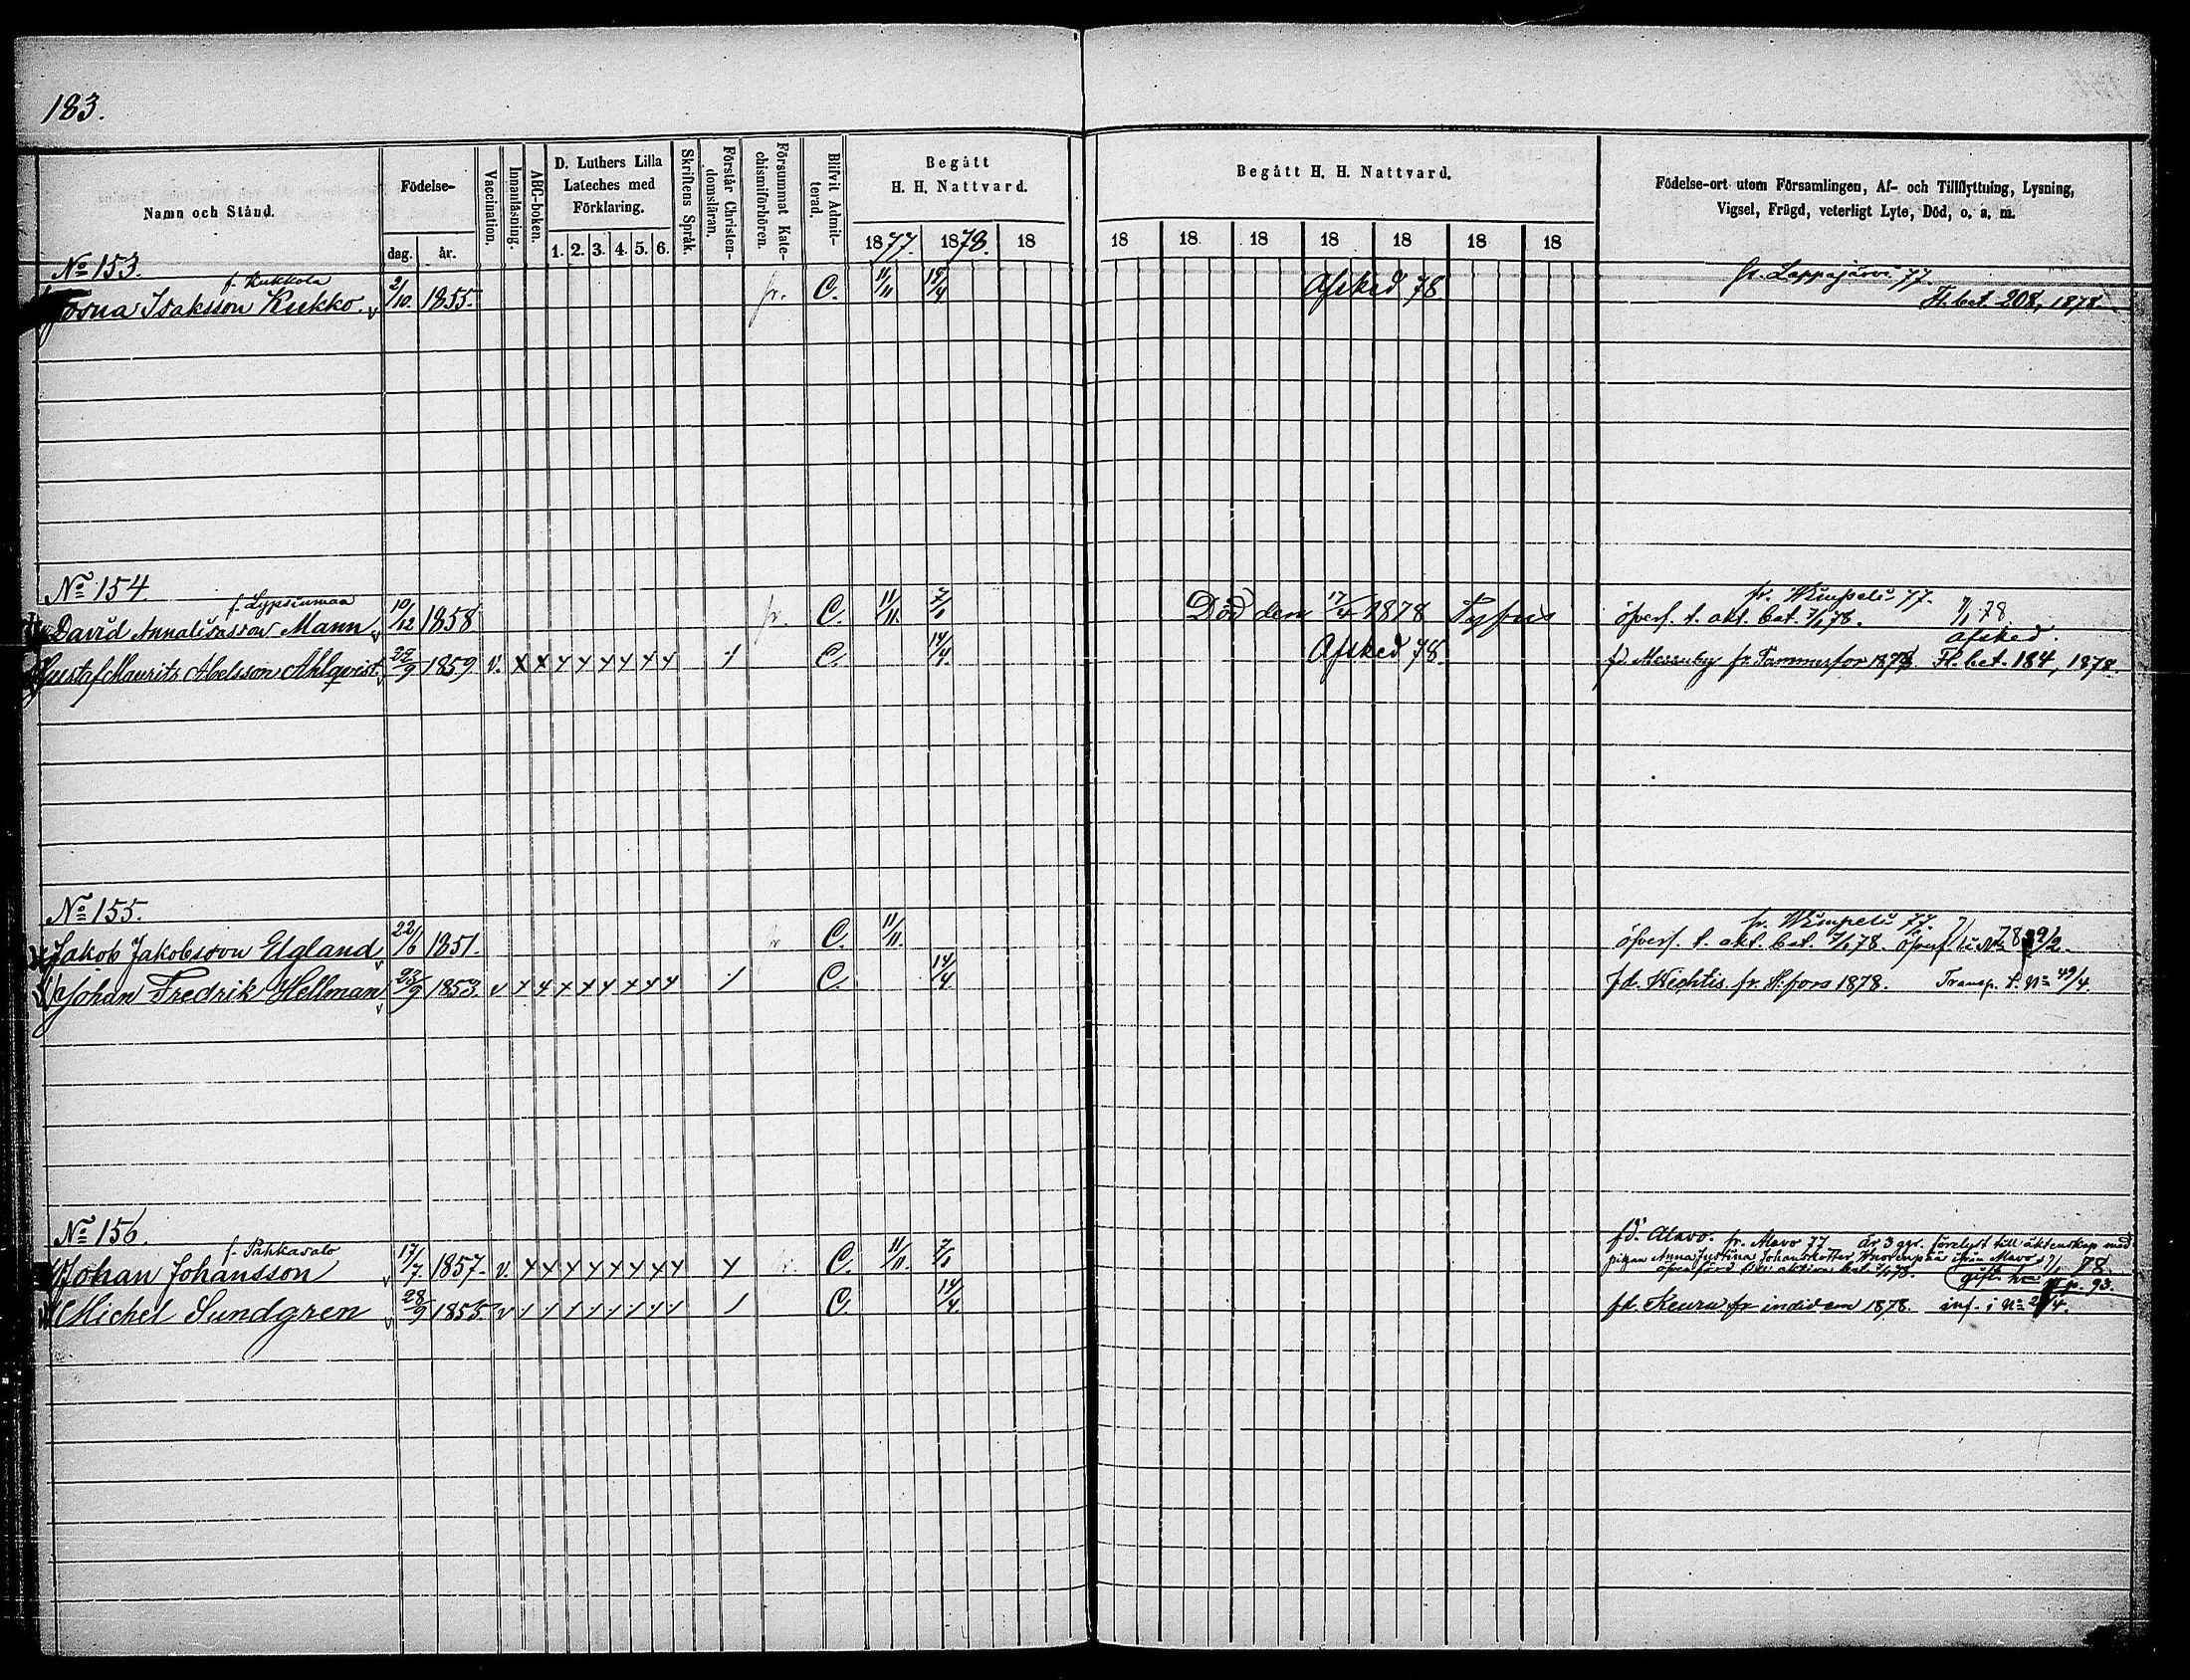 183.
Namn och Stånd.
Födelse-
dag. år.
Vaccination.
Innanläsning.
ABC-boken.
D. Luthers Lilla
Lateches med
Förklaring.
1. 2. 3. 4. 5. 6.
Skriftens Språk.
Förstår Christen-
domsläran.
Försummat Kate-
chismiförhören.
Blifvit Admit-
terad.
Begått
H. H. Nattvard.
1877. 1878. 18
Begått H. H. Nattvard.
18 18 18 18 18 18 18
Födelse-ort utom Församlingen, Af- och Tillflyttning, Lysning,
Vigsel, Frägd, veterligt Lyte, Död, o. a. m.
No 153.
f. Kukkola
Josua Isaksson Kukko. v 2/10. 1855. fr. C. 11/11 14/4 Afsked 78 fr. Lappajärvi 77.
Fl. bet. 208, 1878.
No 154.
f. Lypsinmaa
David Annalisasson Mann v 10/12 1858. fr. C. 11/11. 7/1 Död den 17/4 1878 Tyfus fr. Wimpeli 77.
öfverf. t. akt. bat. 7/1 78. 7/1 78.
Afsked.
Gustaf Maurits Abelsson Ahlqvist. v 29/9 1859. v. x x x x x x x x / C. 14/4. Afsked 78. fd. Messuby fr. Tammerfor 1878 Fl. bet. 184, 1878.
No 155.
Jakob Jakobsson Elgland v 22/6 1851. fr C. 11/11. fr. Wimpeli 77.
öfverf. t. akt. bat. 7/1 78.
Johan Fredrik Hellman v 23/9 1853. v x x x x x x x x / C. 14/4 fd. Wichtis. fr. H:fors 1878. Transp. t. No 49/4.
No 156.
f. Pahkasalo
Johan Johansson v 17/7 1857. v. x x x x x x x x x C. 11/11. 7/1 fd. Alavo. fr. Alavo 77 är 3 ggr. förelyst till äktenskap med
pigan Anna Justina Johansdotter ifrån Alavo 7/1 78.
p. 93.
Michel Sundgren v 28/9 1855. v / / / / / / / / / C. 14/4. fd. Keuru fr indidem 1878. inf. i No